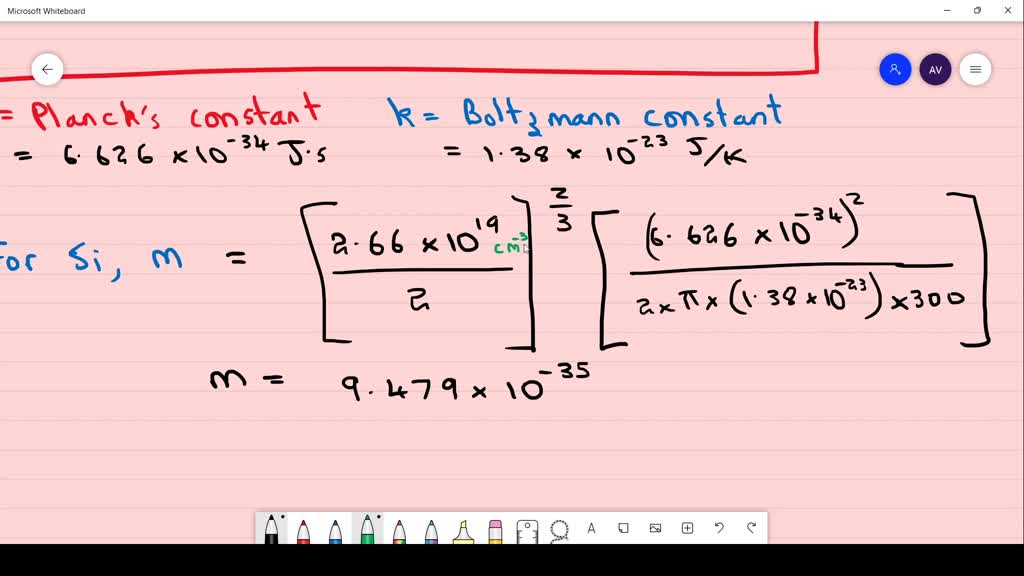 Microsoft Whiteboard
AV
= Planck's constant k = Boltzmann constant
= 6.626 × 10⁻³⁴ J·s = 1.38 × 10⁻²³ J/K
For Si, m = [2.66 × 10¹⁹ cm⁻³ / 2]^(2/3) [(6.626 × 10⁻³⁴)² / 2 × π × (1.38 × 10⁻²³) × 300]
m = 9.479 × 10⁻³⁵
A